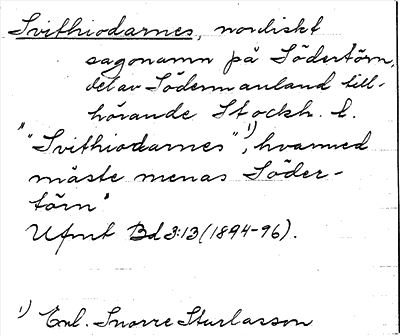 Svithiodarnes, nordiskt
sagonamn på Södertörn,
del av Södermanland till-
hörande Stockh. l.
"
"Svithiodarnes" 1), hvarmed
måste menas Söder-
törn"
Ufmt Bd 3:13 (1894-96).
1) Enl. Snorre Sturlasson